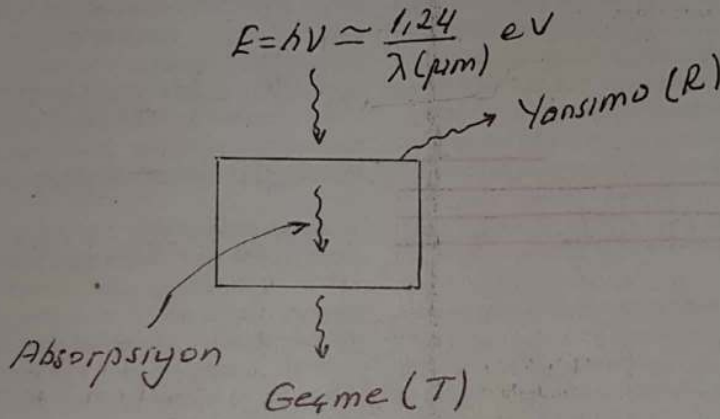 E=hν ≃ 1,24 / λ(μm) eV
Yansıma (R)
Absorpsiyon
Geçme (T)